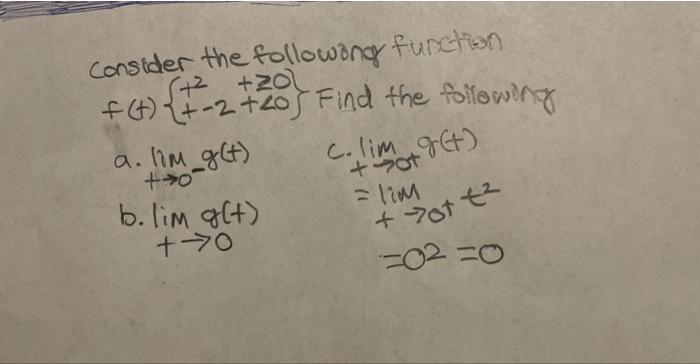 Consider the following function
f(t) { t² t≥0
t-2 t<0 } Find the following
a. lim g(t)
t→0⁻
b. lim g(t)
t→0
c. lim g(t)
t→0+
= lim t²
t→0+
=0² =0